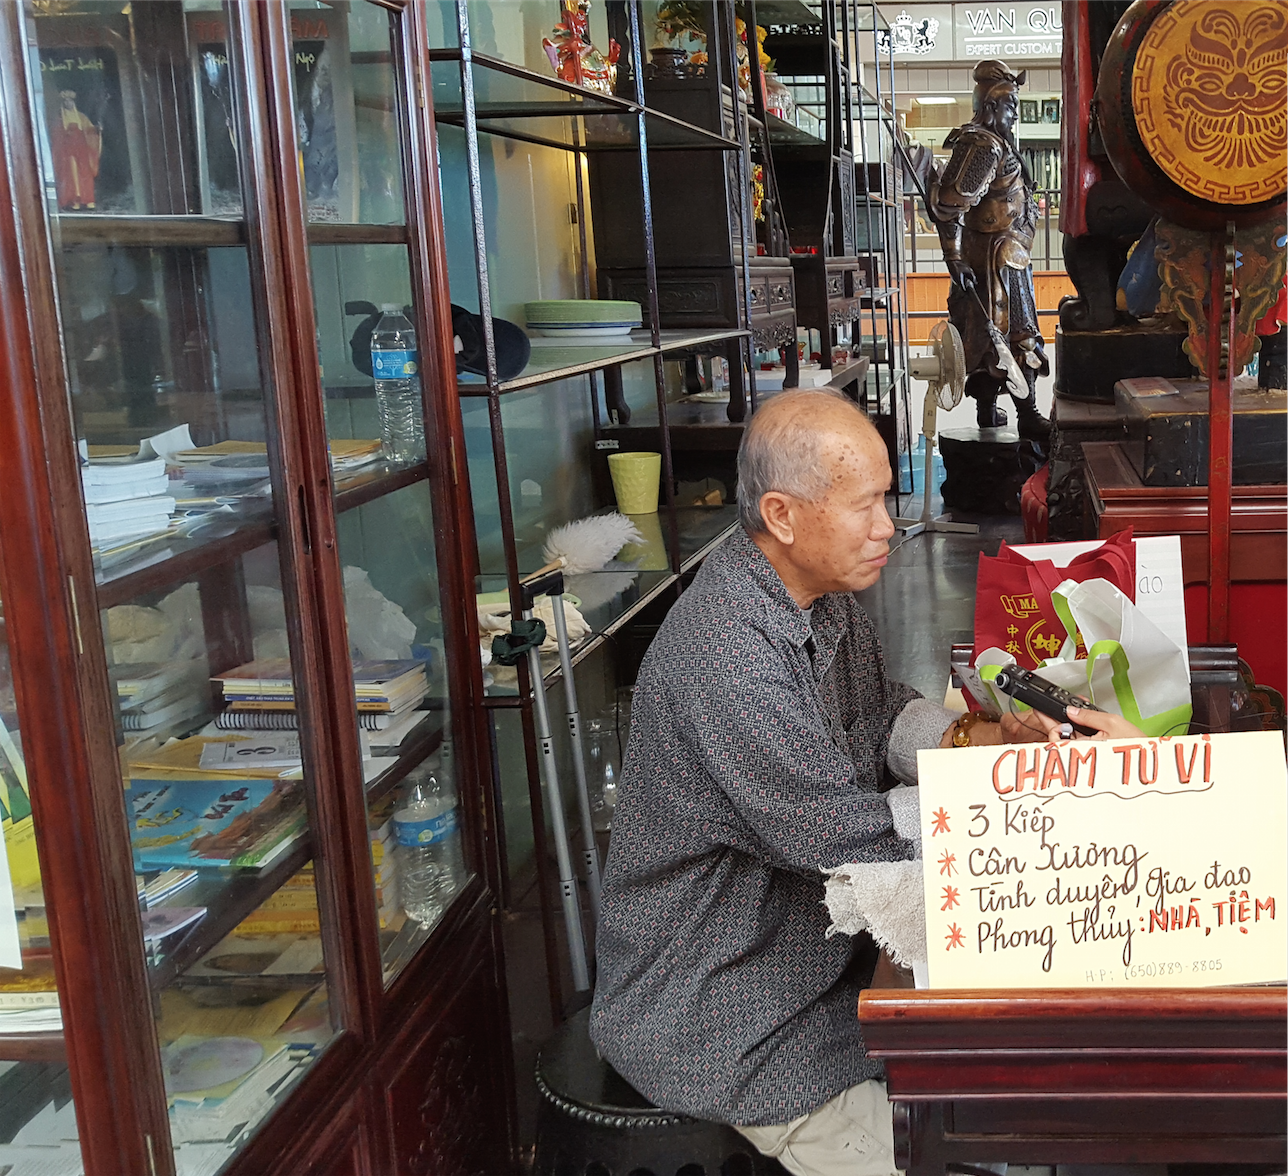 VAN QU
EXPERT CUSTOM T
ào
MA
中
秋
坤
CHẤM TỬ VI
* 3 Kiếp
* Cân Xương
* Tình duyên, gia đạo
* Phong thủy: NHÀ, TIỆM
H·P: (650)889-8805